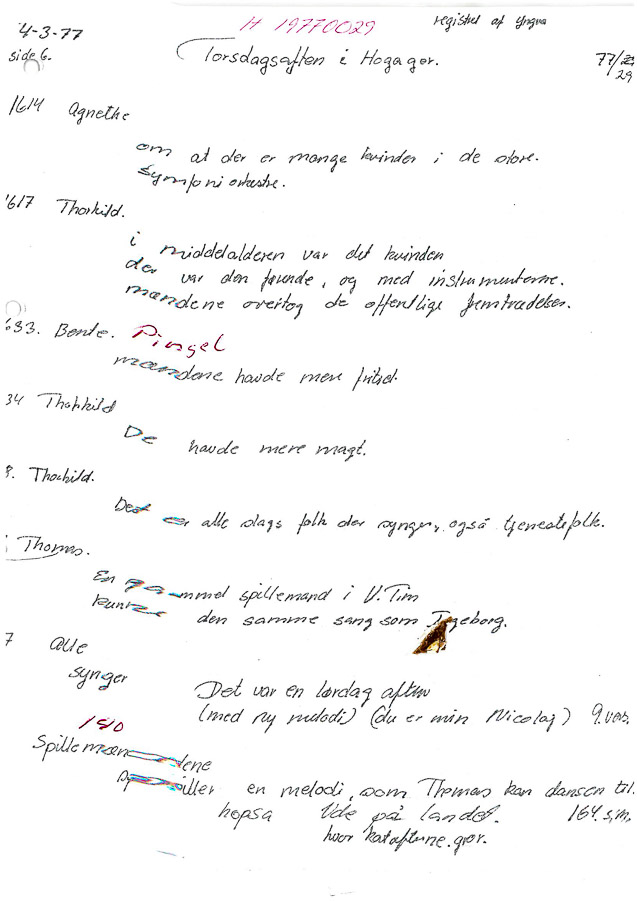 4-3-77 H 19770029 registret af Yngva
side 6. Torsdagsaften i Hogager. 77/
29
1614 Agnethe
om at der er mange kvinder i de store.
symfoni orkestre.
1617 Thorkild.
i middelalderen var det kvinden
der var den førende, og med instrumenterne.
mændene overtog de offentlige fremtrædelser.
633. Bente. Pingel
mændene havde mere fritid.
34 Thorkild
De havde mere magt.
8. Thorkild.
Det er alle slags folk der synger, også tjenestefolk.
Thomas.
En gammel spillemand i V. Tim
kunne den samme sang som Ingeborg.
7 alle
synger Det var en lørdag aften
(med ny melodi) (du er min Nicolaj) 9. vers.
Spillemændene
spiller en melodi, som Thomas kan dansen til.
hopsa Ude på landet. 164. s.m.
hvor kat gør.